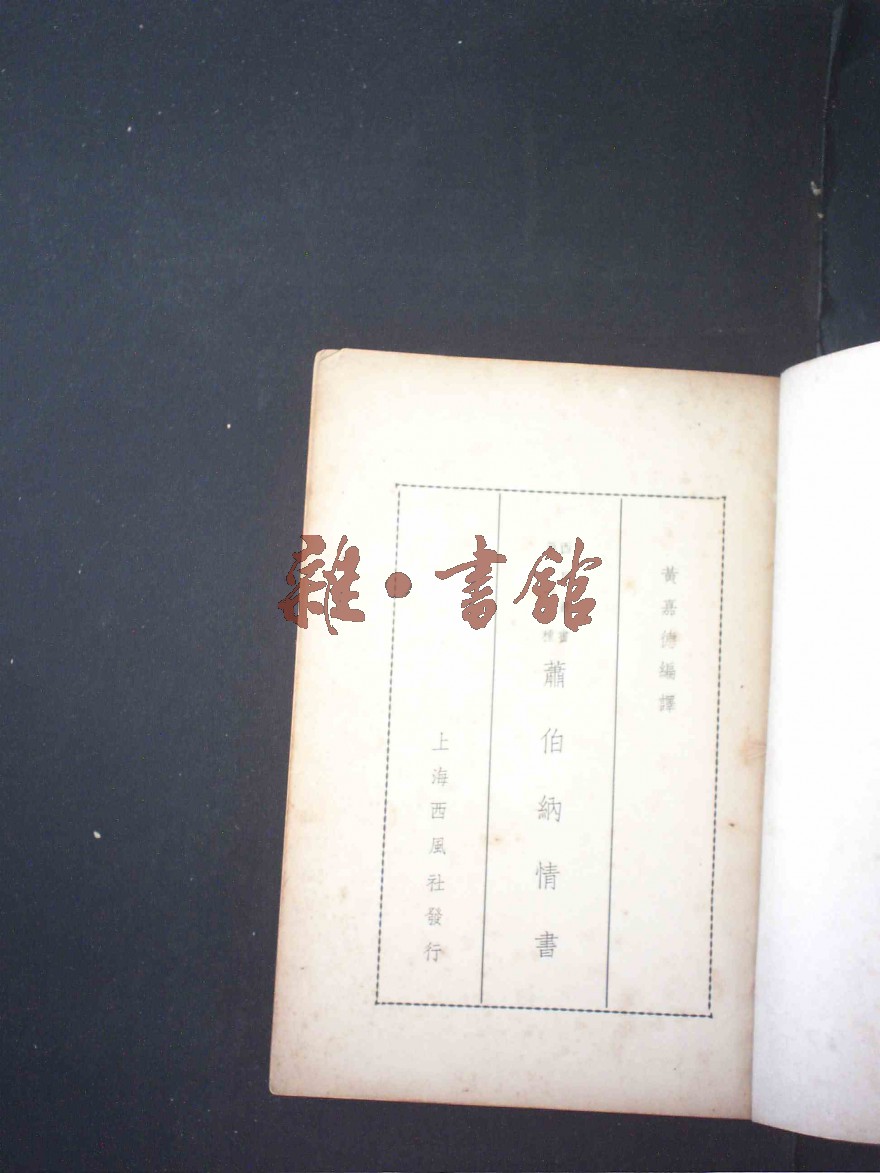 黃嘉德編譯
蕭伯納情書
上海西風社發行
雜·書館